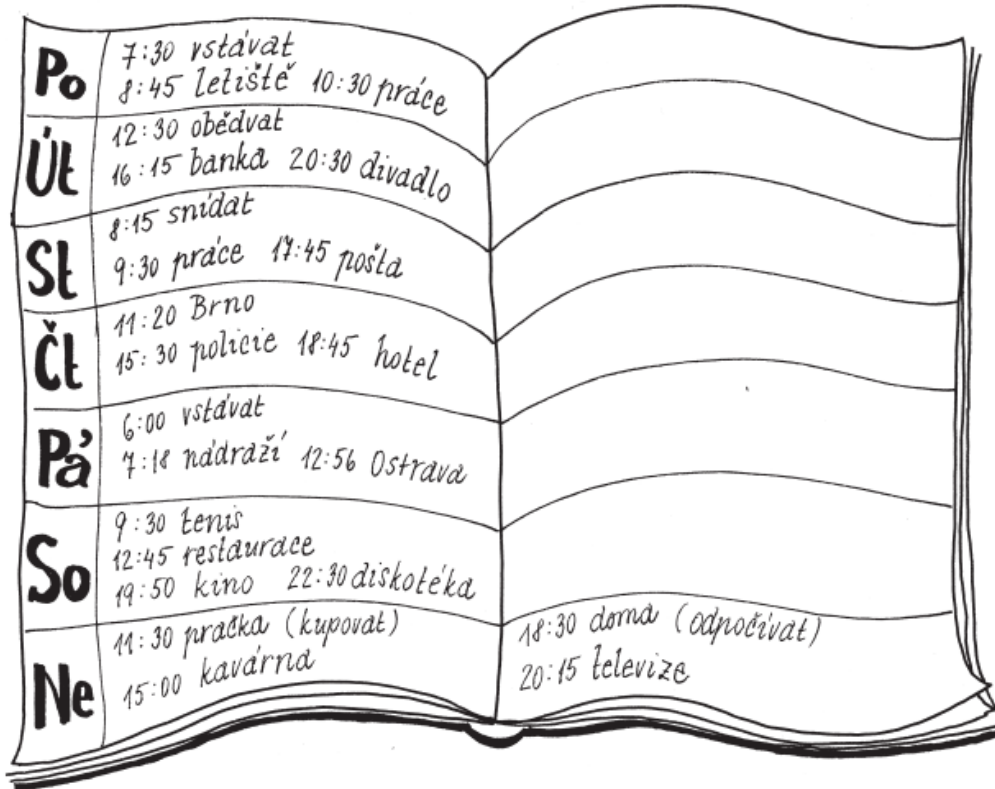 Po
7:30 vstávat
8:45 letiště 10:30 práce
Út
12:30 obědvat
16:15 banka 20:30 divadlo
St
8:15 snídat
9:30 práce 17:45 pošta
Čt
11:20 Brno
15:30 policie 18:45 hotel
Pá
6:00 vstávat
7:18 nádraží 12:56 Ostrava
So
9:30 tenis
12:45 restaurace
19:50 kino 22:30 diskotéka
Ne
11:30 pračka (kupovat)
15:00 kavárna
18:30 doma (odpočívat)
20:15 televize